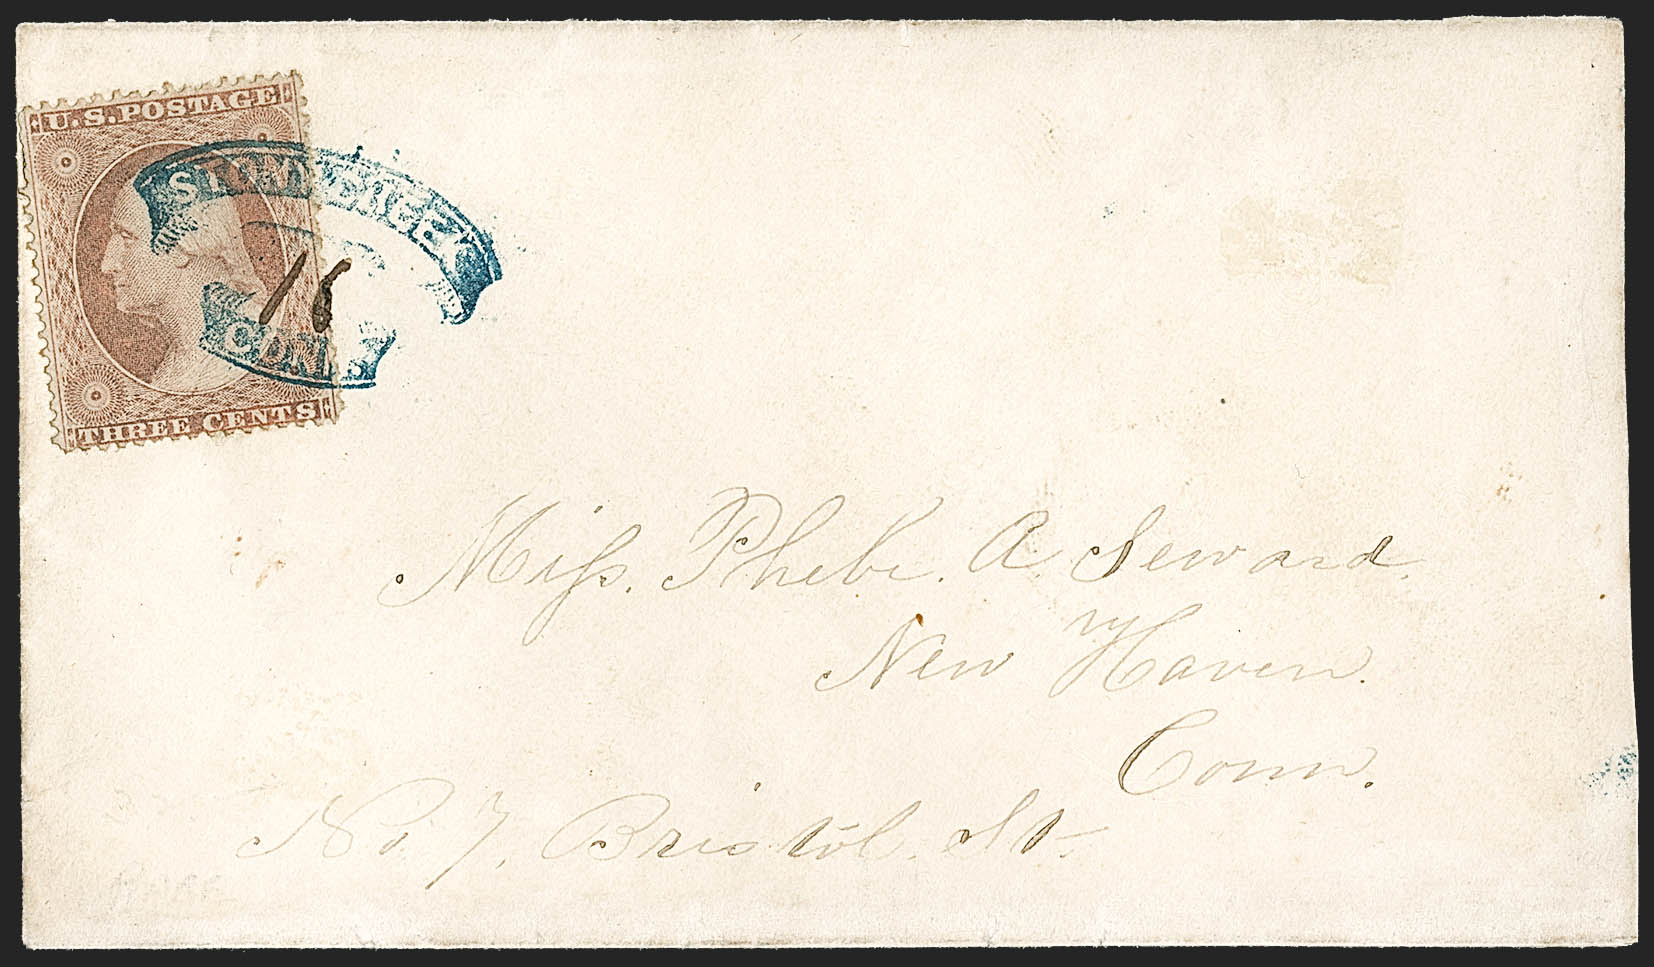 U.S. POSTAGE
CONN.
16
THREE CENTS
Miss. Phebe. A. Seward.
New Haven.
Conn.
No. 7, Bristol. St.